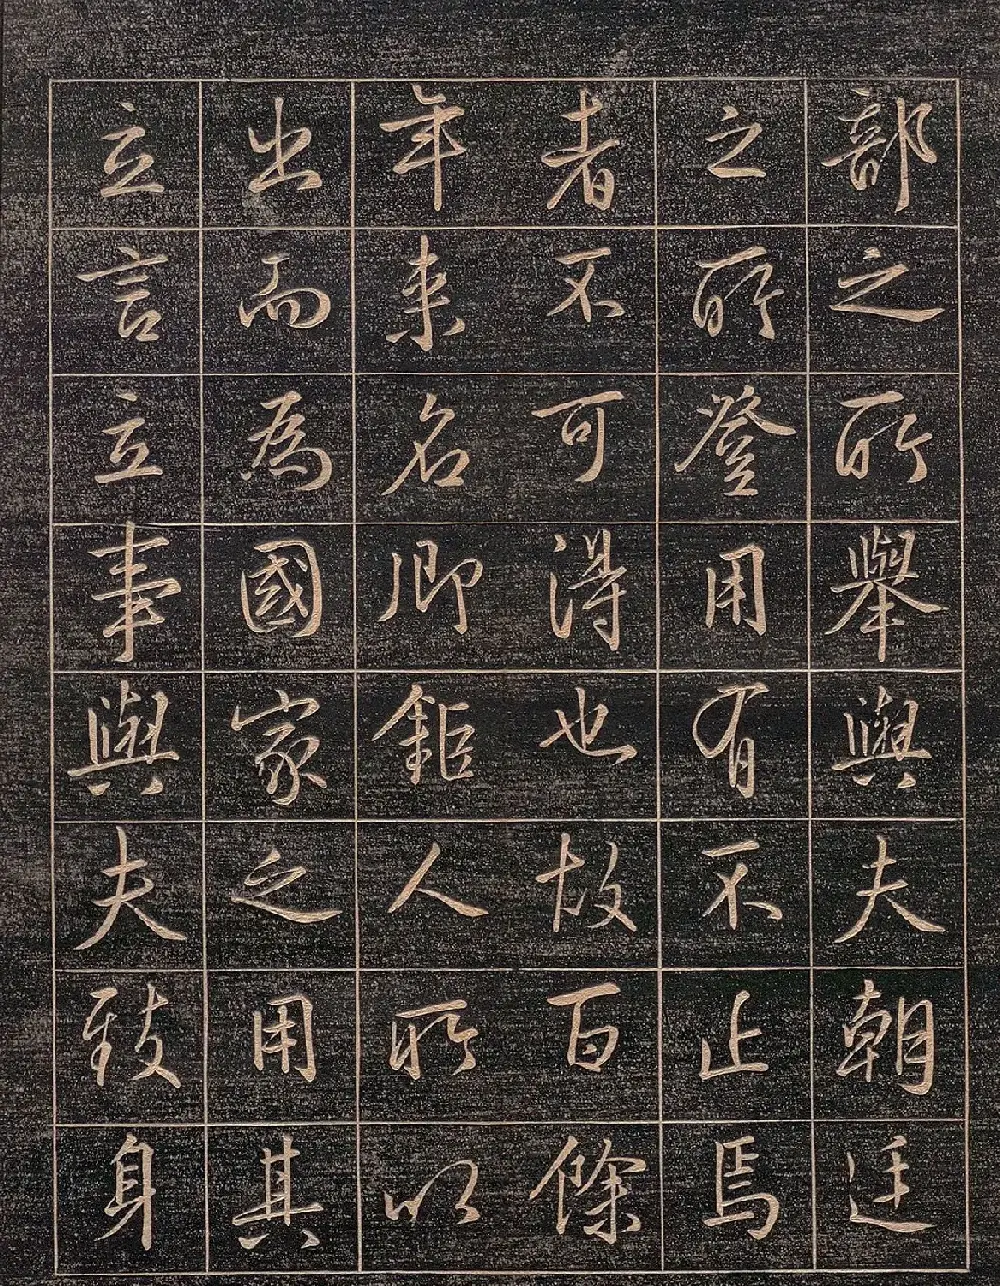 部之所舉與夫朝廷
之所登用有不止焉
者不可得也故百餘
年来名卿鉅人所以
出而為國家之用其
立言立事與夫致身